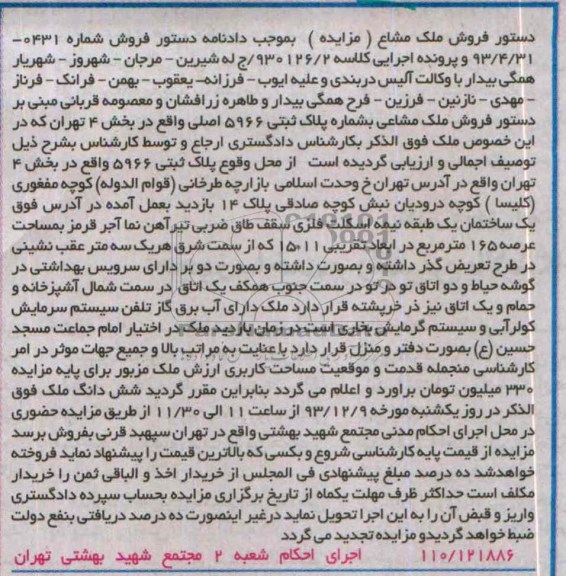 دستور فروش ملک مشاع ( مزایده ) بموجب دادنامه دستور فروش شماره ۰۴۳۱-
۹۳/۴/۳۱ و پرونده اجرایی کلاسه ۹۳۰۱۲۶/۲/ج له شیرین - مرجان - شهروز - شهریار
همگی بیدار با وکالت آلیس دربندی و علیه ایوب - فرزانه- یعقوب - بهمن - فرانک - فرناز
- مهدی - نازنین - فرزین - فرح همگی بیدار و طاهره زرافشان و معصومه قربانی مبنی بر
دستور فروش ملک مشاعی بشماره پلاک ثبتی ۵۹۶۶ اصلی واقع در بخش ۴ تهران که در
این خصوص ملک فوق الذکر بکارشناس دادگستری ارجاع و توسط کارشناس بشرح ذیل
توصیف اجمالی و ارزیابی گردیده است از محل وقوع پلاک ثبتی ۵۹۶۶ واقع در بخش ۴
تهران واقع در آدرس تهران خ وحدت اسلامی بازارچه طرخانی (قوام الدوله) کوچه مغفوری
(کلیسا ) کوچه درودیان نبش کوچه صادقی پلاک ۱۴ بازدید بعمل آمده در آدرس فوق
یک ساختمان یک طبقه نیمه اسکلت فلزی سقف طاق ضربی تیرآهن نما آجر قرمز بمساحت
عرصه ۱۶۵ مترمربع در ابعاد تقریبی ۱۱*۱۵ که از سمت شرق هریک سه متر عقب نشینی
در طرح تعریض گذر داشته و بصورت داشته و بصورت دو بر دارای سرویس بهداشتی در
گوشه حیاط و دو اتاق تو در تو در سمت جنوب همکف یک اتاق در سمت شمال آشپزخانه و
حمام و یک اتاق نیز در خرپشته قرار دارد ملک دارای آب برق گاز تلفن سیستم سرمایش
کولرآبی و سیستم گرمایش بخاری است در زمان بازدید ملک در اختیار امام جماعت مسجد
حسین (ع) بصورت دفتر و منزل قرار دارد با عنایت به مراتب بالا و جمیع جهات موثر در امر
کارشناسی منجمله قدمت و موقعیت مساحت کاربری ارزش ملک مزبور برای پایه مزایده
۳۳۰ میلیون تومان براورد و اعلام می گردد بنابراین مقرر گردید شش دانگ ملک فوق
الذکر در روز یکشنبه مورخه ۹۳/۱۲/۹ از ساعت ۱۱ الی ۱۱/۳۰ از طریق مزایده حضوری
در محل اجرای احکام مدنی مجتمع شهید بهشتی واقع در تهران سپهبد قرنی بفروش برسد
مزایده از قیمت پایه کارشناسی شروع و بکسی که بالاترین قیمت را پیشنهاد نماید فروخته
خواهدشد ده درصد مبلغ پیشنهادی فی المجلس از خریدار اخذ و الباقی ثمن را خریدار
مکلف است حداکثر ظرف مهلت یکماه از تاریخ برگزاری مزایده بحساب سپرده دادگستری
واریز و قبض آن را به این اجرا تحویل نماید درغیر اینصورت ده درصد دریافتی بنفع دولت
ضبط خواهد گردیدو مزایده تجدید می گردد
۱۱۰/۱۲۱۸۸۶ اجرای احکام شعبه ۲ مجتمع شهید بهشتی تهران